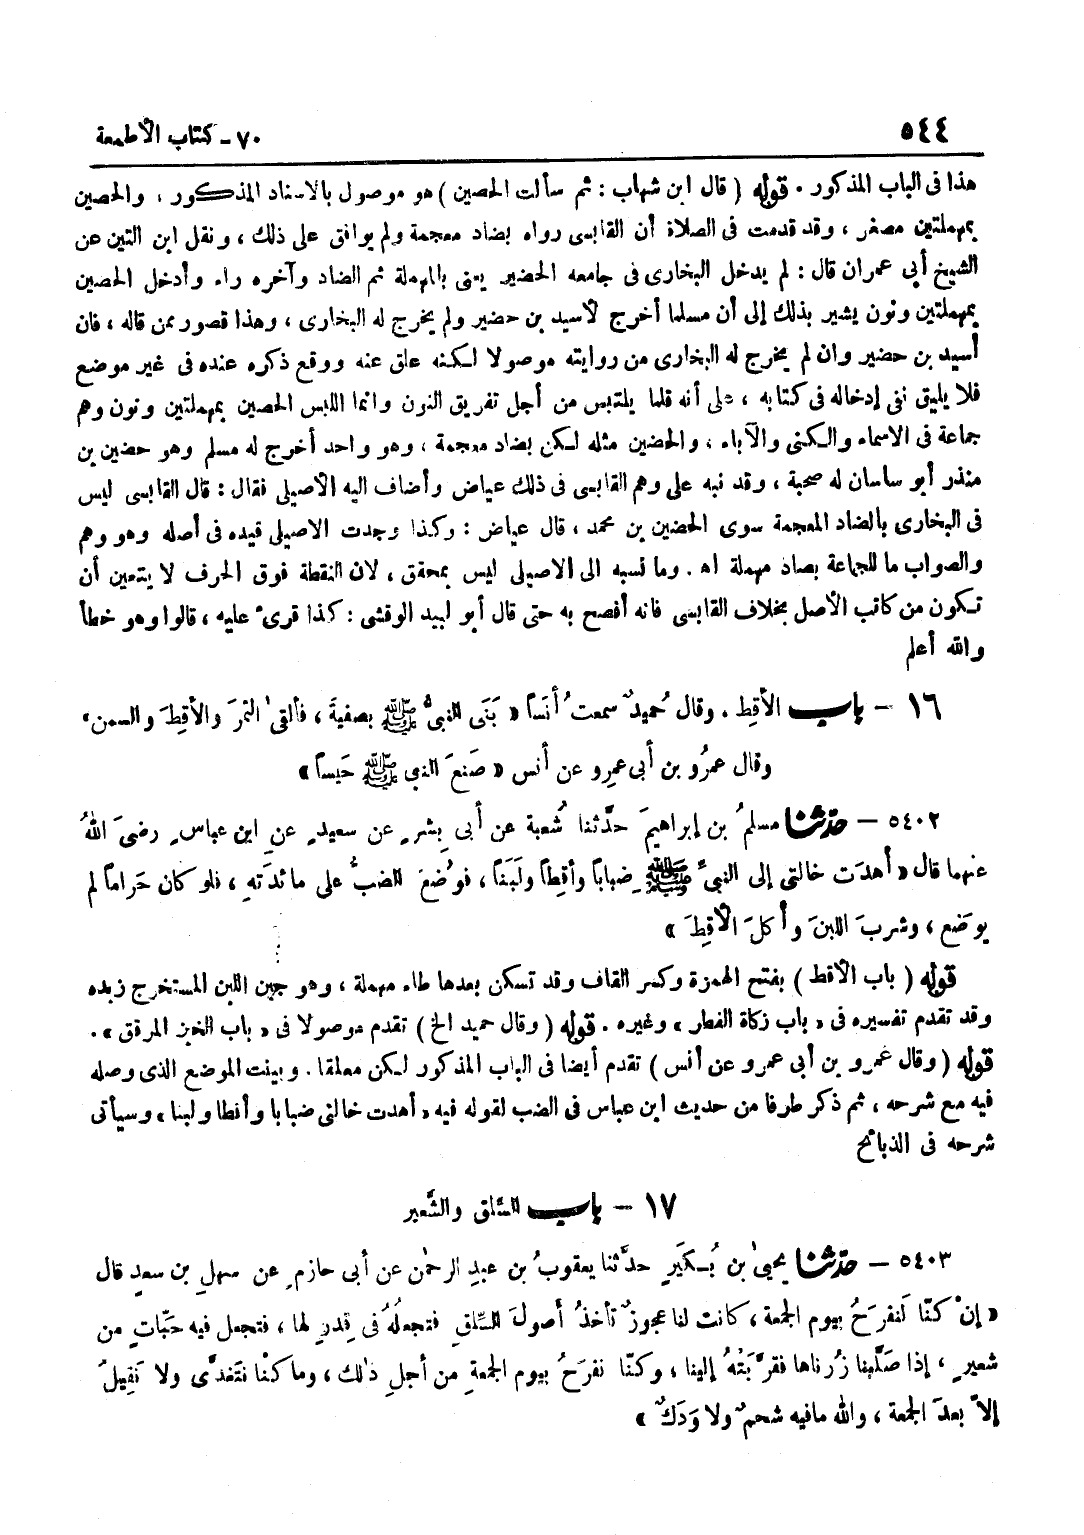 ٥٤٤
٧٠ - كتاب الأطعمة
هذا فى الباب المذكور . قوله ( قال ابن شهاب : ثم سألت الحصين ) هو موصول بالاسناد المذكور ، والحصين
بمهملتين مصغر ، وقد قدمت فى الصلاة أن القابسى رواه بضاد معجمة ولم يوافق على ذلك ، ونقل ابن التين عن
الشيخ أبي عمران قال : لم يدخل البخارى فى جامعه الحضير يعنى بالمهملة ثم الضاد وآخره راء وأدخل الحصين
بمهملتين ونون يشير بذلك إلى أن مسلما أخرج لأسيد بن حضير ولم يخرج له البخارى ، وهذا قصور ممن قاله ، فان
أسيد بن حضير وان لم يخرج له البخارى من روايته موصولا لكنه علق عنه ووقع ذكره عنده فى غير موضع
فلا يليق نفى إدخاله فى كتابه ، على أنه قلما يلتبس من أجل تفريق النون وانما اللبس الحصين بمهملتين ونون وهم
جماعة فى الاسماء والكنى والآباء ، والحضين مثله لكن بضاد معجمة ، وهو واحد أخرج له مسلم وهو حضين بن
منذر أبو ساسان له صحبة ، وقد نبه على وهم القابسى فى ذلك عياض وأضاف اليه الأصيلى فقال : قال القابسى ليس
فى البخارى بالضاد المعجمة سوى الحضين بن محمد ، قال عياض : وكذا وجدت الاصيلى قيده فى أصله وهو وهم
والصواب ما للجماعة بصاد مهملة اه . وما نسبه الى الاصيلى ليس بمحقق ، لان النقطة فوق الحرف لا يتعين أن
تكون من كاتب الأصل بخلاف القابسى فانه أفصح به حتى قال أبو لبيد الوقشى : كذا قرىء عليه ، قالوا وهو خطأ
والله أعلم
١٦ - باب الأقط . وقال حُميدٌ سمعتُ أنَساً « بَنَى النبىُّ ﷺ بصفيةَ ، فألقىٰ التمرَ والأقِطَ والسمن »
وقال عمرُو بن أبى عمرٍو عن أنس « صَنعَ النبى ﷺ حَيساً »
٥٤٠٢ - حدثنا مسلمُ بن إبراهيمَ حدَّثنا شُعبة عن أبى بِشرٍ عن سعيدٍ عنِ ابن عباسٍ رضىَ اللهُ
عنهما قال « أهدَت خالتى إلى النبىِّ ﷺ ضِباباً وأقِطاً ولَبَناً ، فوُضعَ الضبُّ على مائدَتهِ ، فلو كان حَراماً لم
يوضَع ، وشربَ اللبنَ وأكلَ الأقِطَ »
قوله ( باب الأقط ) بفتح الهمزة وكسر القاف وقد تسكن بعدها طاء مهملة ، وهو جبن اللبن المستخرج زبده
وقد تقدم تفسيره فى « باب زكاة الفطر » وغيره . قوله ( وقال حميد الخ ) تقدم موصولا فى « باب الخبز المرقق » .
قوله ( وقال عمرو بن أبى عمرو عن أنس ) تقدم أيضا فى الباب المذكور لكن معلقا . وبينت الموضع الذى وصله
فيه مع شرحه ، ثم ذكر طرفا من حديث ابن عباس فى الضب لقوله فيه « أهدت خالتى ضبابا وأقطا ولبنا » وسيأتى
شرحه فى الذبائح
١٧ - باب السِّلق والشَّعير
٥٤٠٣ - حدثنا يحيىٰ بن بُكَيرٍ حدَّثنا يعقوبُ بن عبدِ الرحمٰن عن أبى حازمٍ عن سهلِ بن سعدٍ قال
« إنْ كنّا لَنفرَحُ بيوم الجمعة ، كانت لنا عجوزٌ تأخذُ أصولَ السِّلقِ فتجعلُهُ فى قِدرٍ لها ، فتجعل فيه حَبّاتٍ من
شعيرٍ ، إذا صَلَّينا زُرناها فقرَّبَتْهُ إلينا ، وكنّا نفرَحُ بيوم الجمعةِ من أجلِ ذٰلك ، وما كنْا نتَغدَّى ولا نَقِيلُ
إلاّ بعدَ الجمعة ، والله مافيه شحمٌ ولا وَدَكٌ »